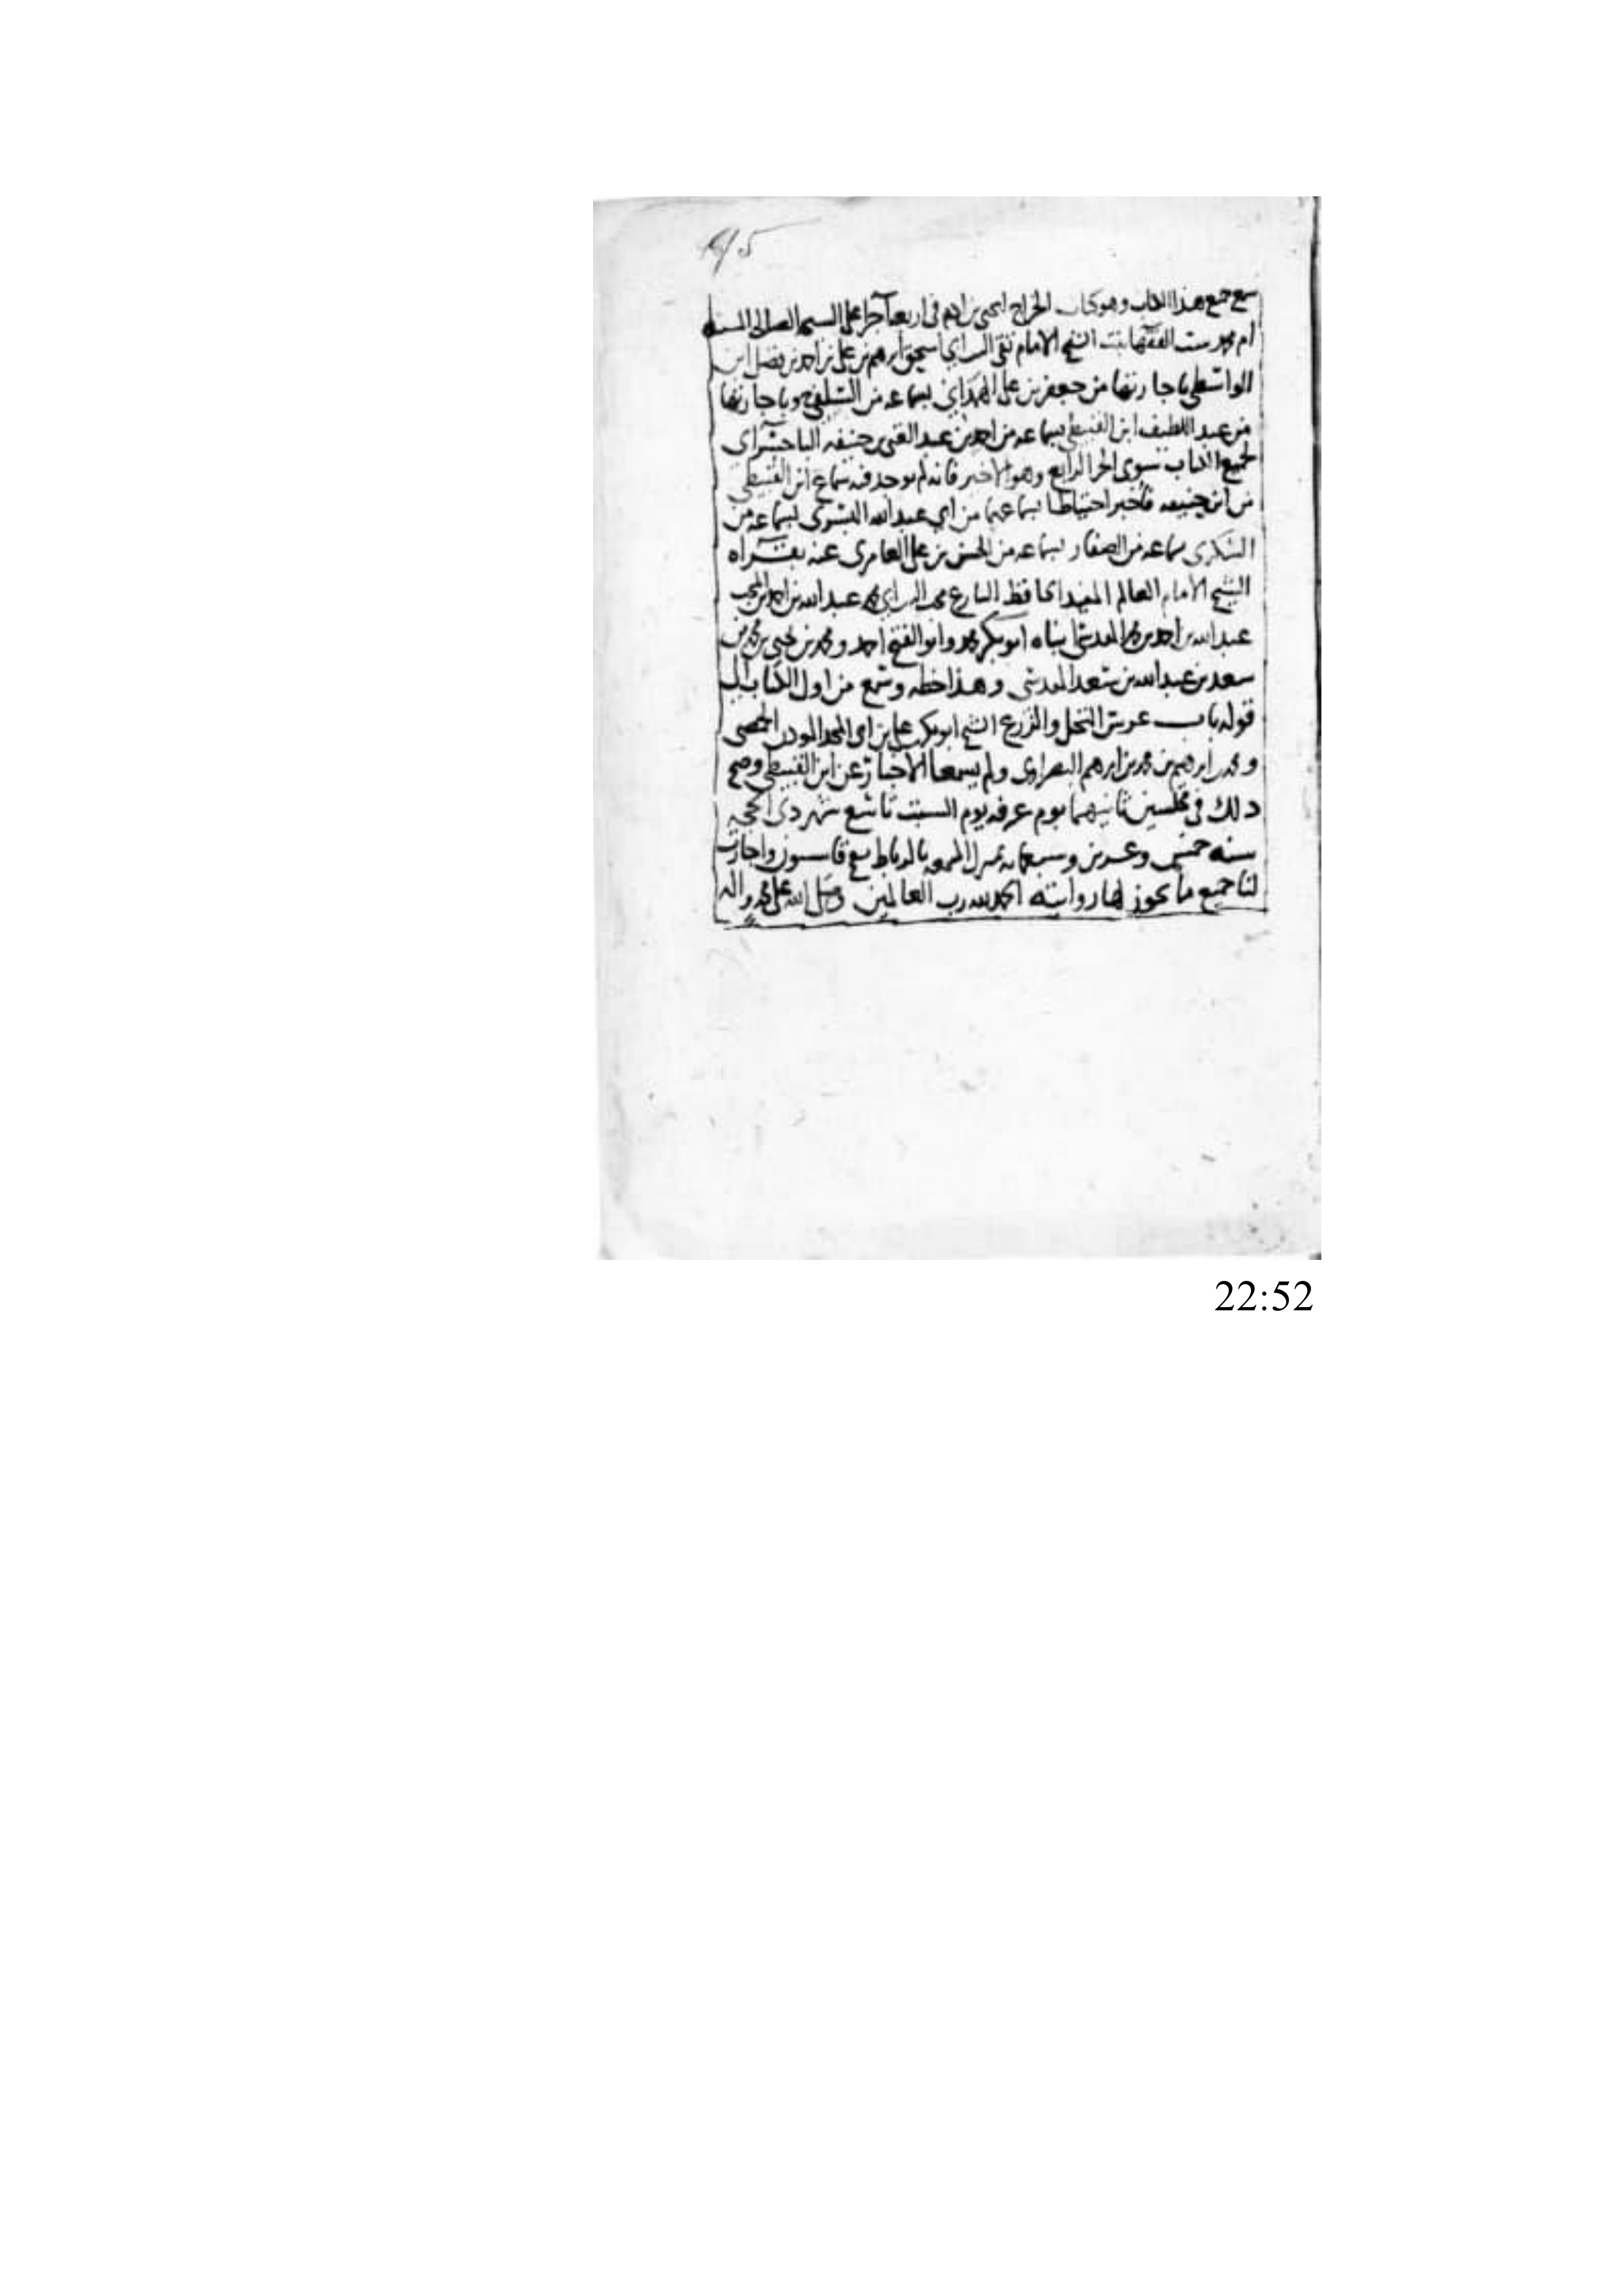 195
سمع جميع هذا الكتاب وهو كتاب الخراج ليحيى بن ادم في اربعة اجزا على الشيخة الصالحة المسنده
ام محمد ست الفقها بنت الشيخ الامام تقي الدين ابي اسحق ابرهيم بن علي بن احمد بن فضل ابن
الواسطي باجازتها من جعفر بن علي الهمداني بسماعه من السلفي ح وباجازتها
من عبد اللطيف ابن القبيطي بسماعه من احمد بن عبد الغني بن حنيفه الباجسراي
لجميع الكتاب سوى الجز الرابع وهو الاخير فانه لم يوجد فيه سماع ابن القبيطي
من ابن حنيفه فاخبر احتياطا بسماعهما من ابي عبد الله البسري بسماعه من
السكري بسماعه من الصفار بسماعه من الحسن بن علي العامري عنه بقراه
الشيخ الامام العالم المفيد الحافظ البارع محب الدين ابي محمد عبد الله بن احمد بن المحب
عبد الله بن احمد بن محمد المقدسي ابناه ابو بكر محمد وابو الفتح احمد ومحمد بن يحيى بن محمد بن
سعد بن عبد الله بن سعد المقدسي وهذا خطه وسمع من اول الكتاب الى
قوله باب غرس النخل والزرع الشيخ ابو بكر بن علي بن ابي المجد المودن الحمصي
ومحمد بن ابرهيم بن محمد بن ابرهيم البصراوي ولم يسمعا الاخبار عن ابن القبيطي وصح
ذلك في مجلسين ثانيهما يوم عرفه يوم السبت تاسع شهر ذي الحجه
سنه خمس وعشرين وسبعمايه بمنزل المسمعه بالرباط بسفح قاسيون واجازت
لنا جميع ما يجوز لها روايته الحمد لله رب العالمين وصلى الله على محمد واله
22:52